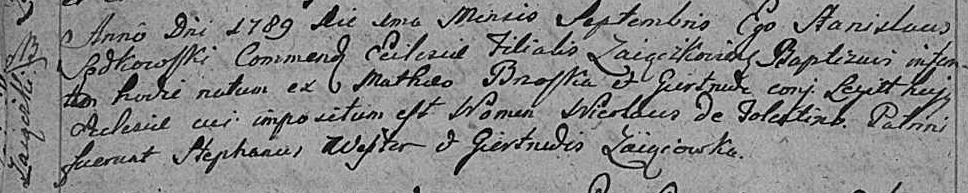 Anno Dni 1789 die 1ma Mensis Septembris Ego Stanislaus
Commend Ecclesiæ Filialis Baptizavi infan-
tem hodie natum ex Mathæo Broska & Giertrude conj. Legitt huj.
Eclesiæ cui impositum est Nomen Nicolaus de Tolentino. Patrini
fuerunt Stephanus Wester & Giertrudis Zaiąciowka.